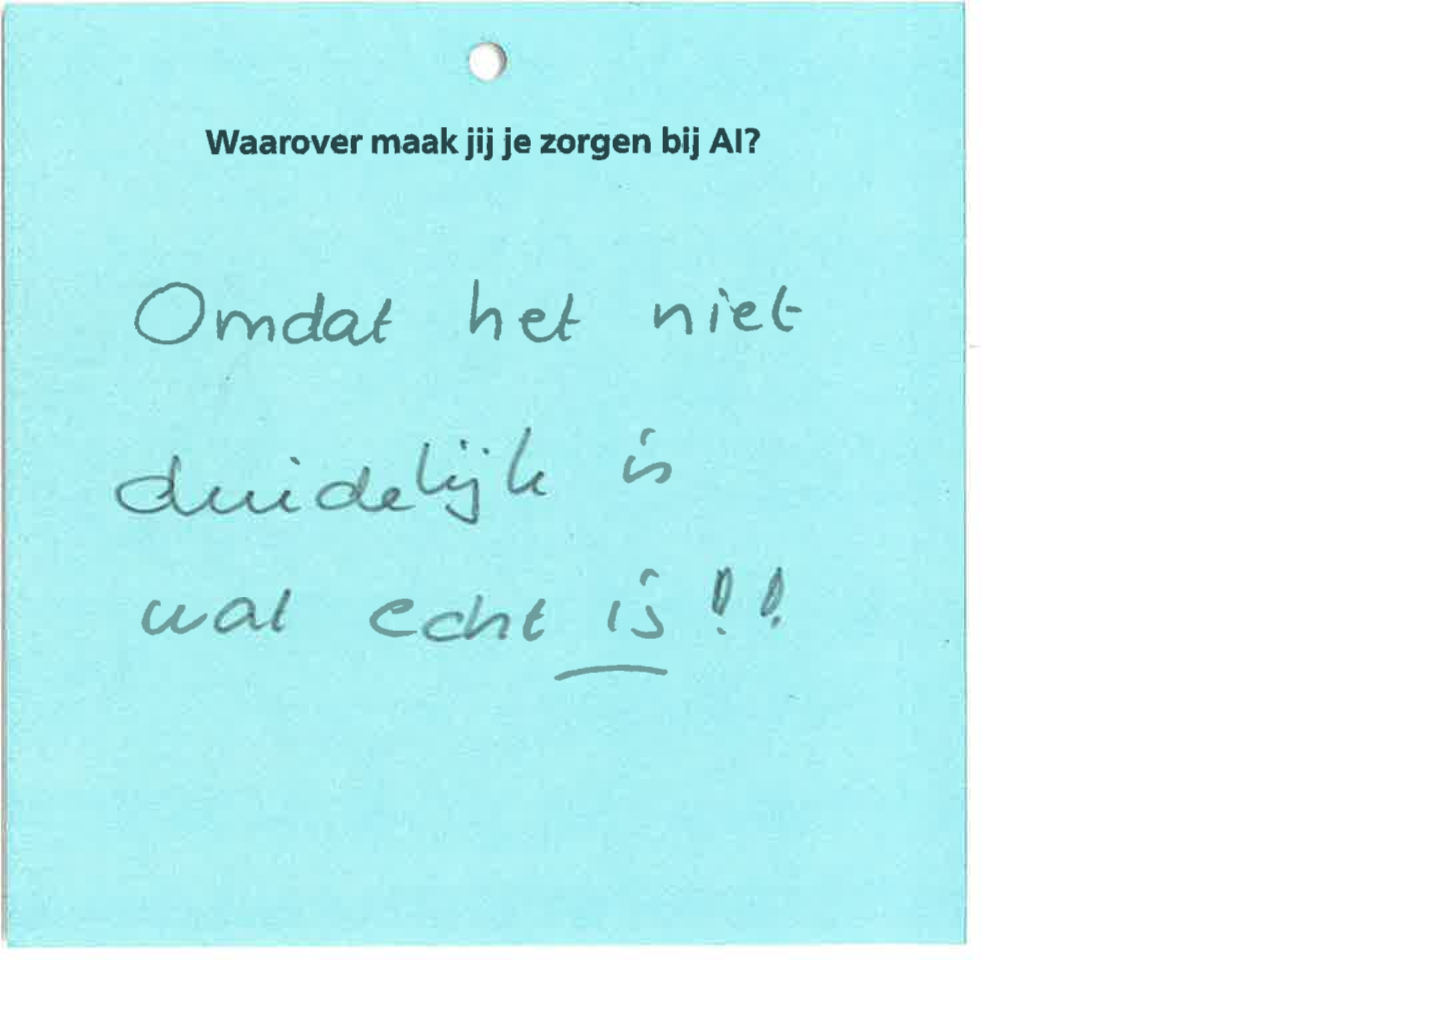 Waarover maak jij je zorgen bij AI?
Omdat het niet
duidelijk is
wat echt is!!